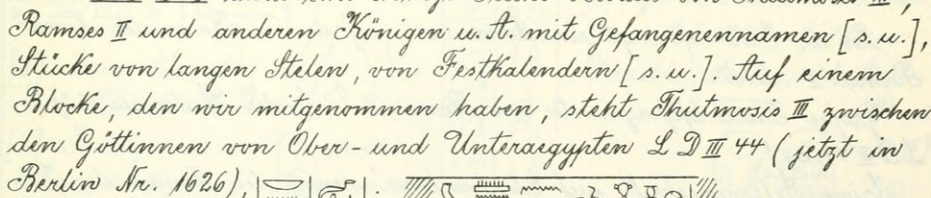 Ramses II und anderen Königen u. A. mit Gefangenennamen [s. u.],
Stücke von langen Stelen, von Festkalendern [s. u.]. Auf einem
Blocke, den wir mitgenommen haben, steht Thutmosis III zwischen
den Göttinnen von Ober- und Unteraegypten L D III 44 (jetzt in
Berlin Nr. 1626),